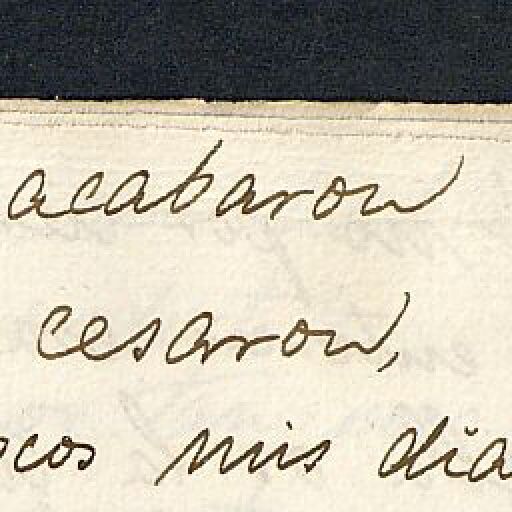 acabaron
cesaron,
ocos mis dia